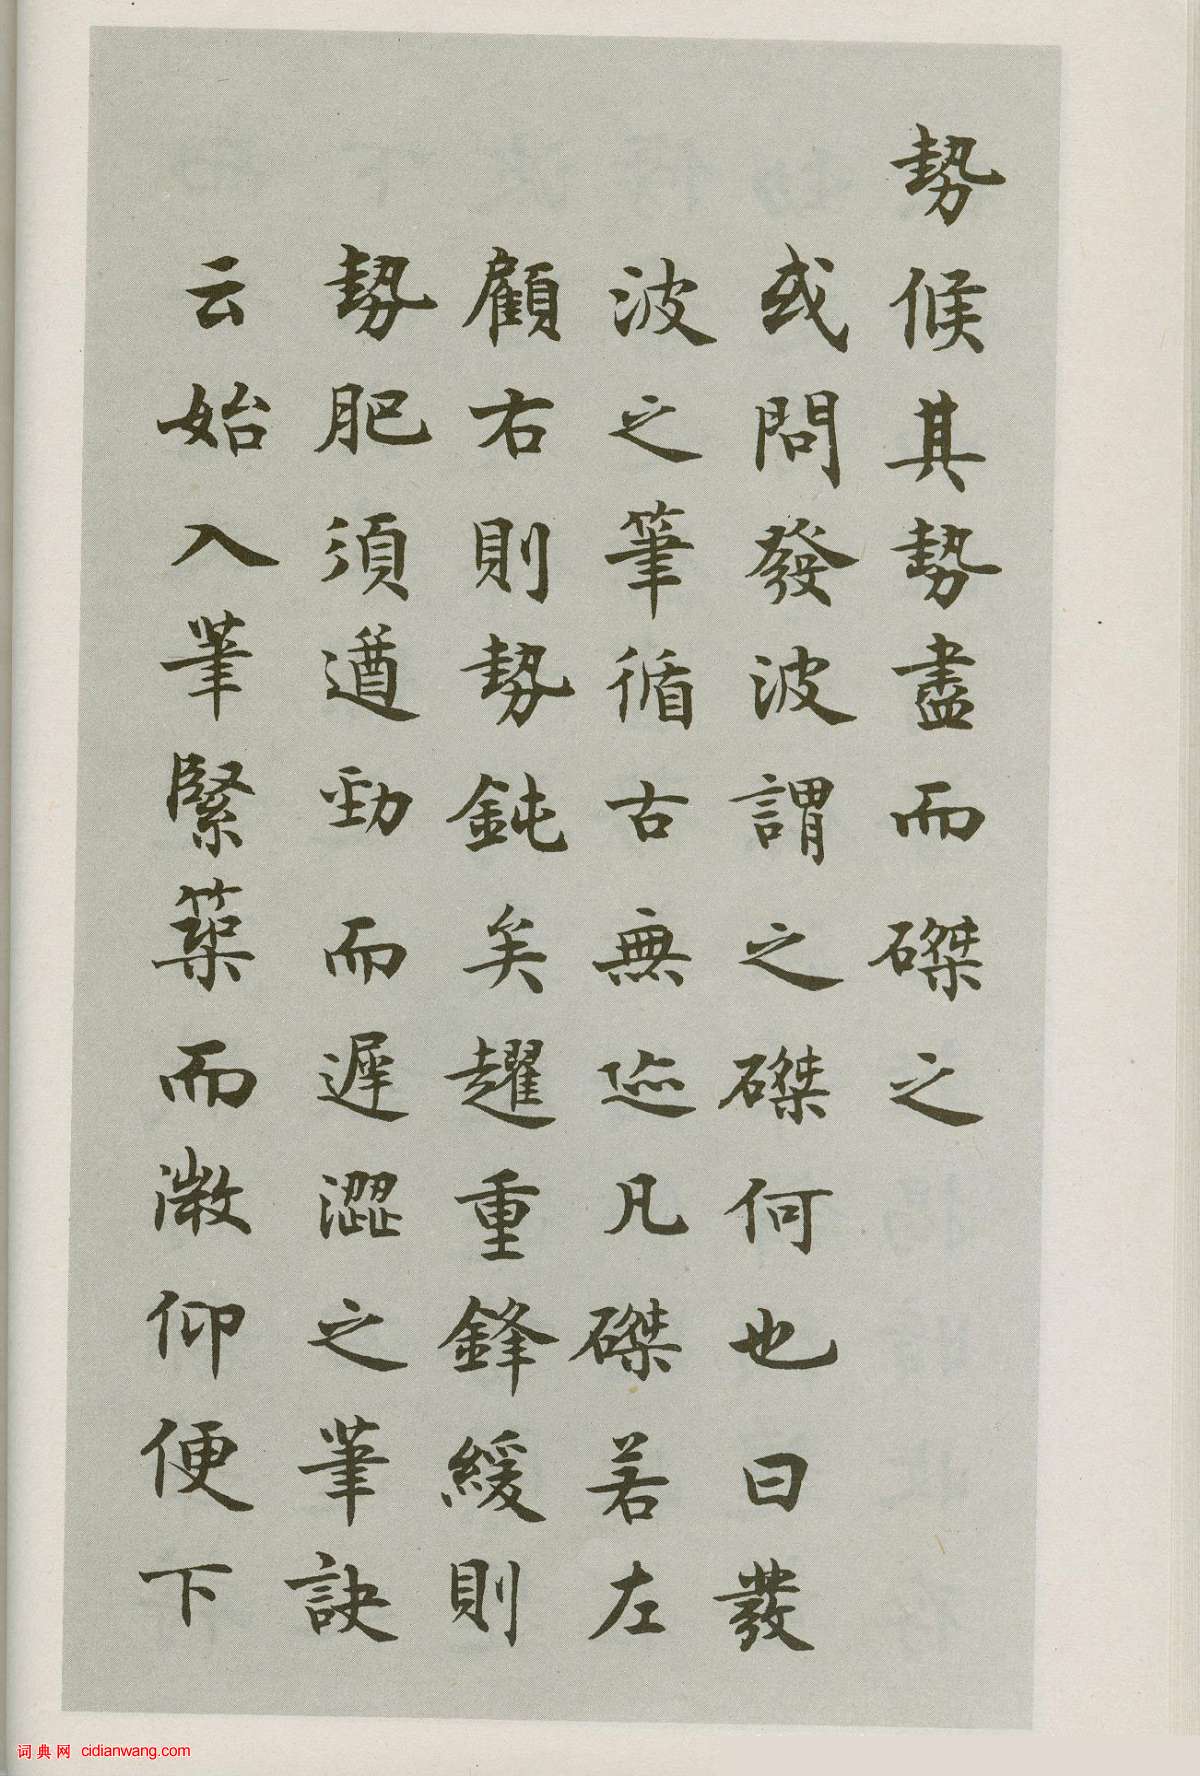 勢候其勢盡而磔之
或問發波謂之磔何也曰發
波之筆循古無迹凡磔若左
顧右則勢鈍矣趯重鋒緩則
勢肥須遒勁而遲澀之筆訣
云始入筆緊築而微仰便下
词典网 cidianwang.com